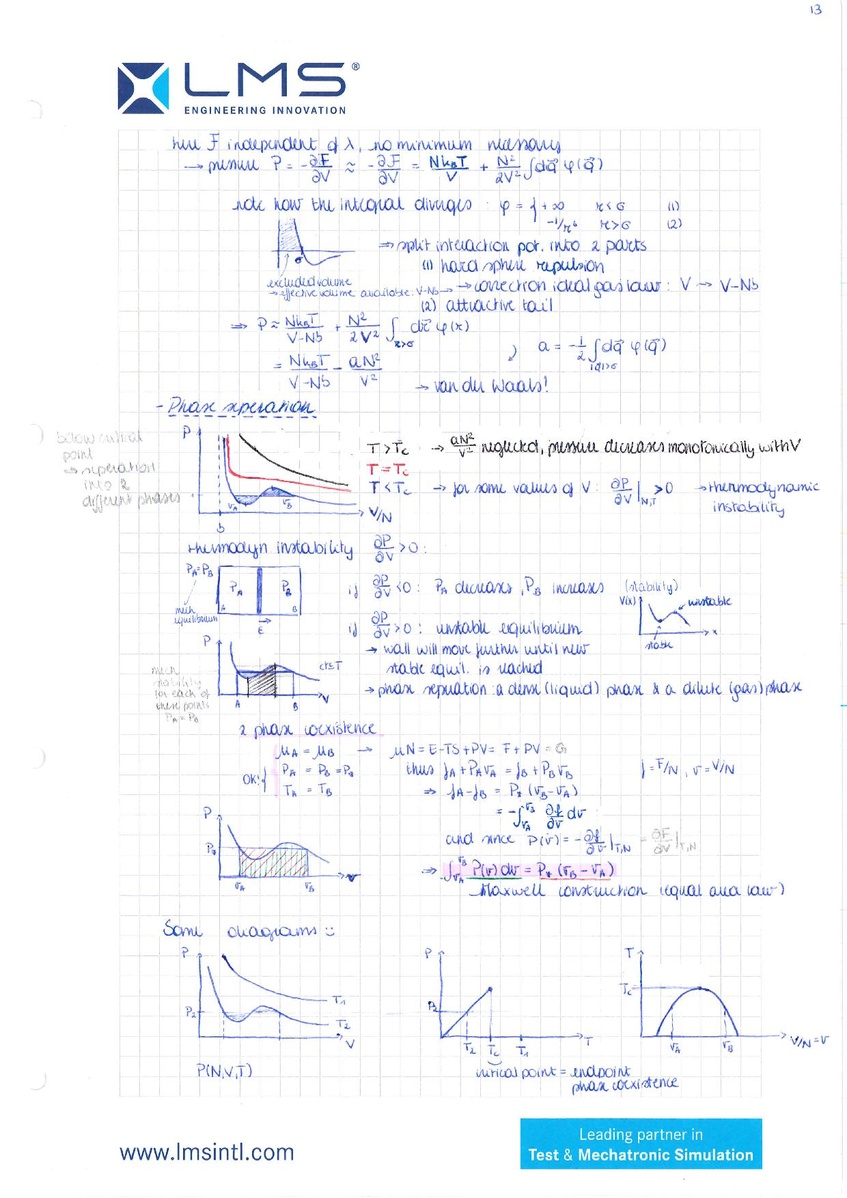 13
LMS®
ENGINEERING INNOVATION
here F independent of λ, no minimum necessary
→ pressure P = -∂F/∂V ≈ -∂F/∂V = NkBT/V + N²/2V² ∫dq⃗ φ(q⃗)
note how the integral diverges : φ = { +∞ r<σ (1)
-1/r⁶ r>σ (2)
σ
⇒ split interaction pot. into 2 parts
(1) hard sphere repulsion
excluded volume
→ effective volume available: V-Nb → correction ideal gas law : V → V-Nb
(2) attractive tail
⇒ P ≈ NkBT/V-Nb + N²/2V² ∫r>σ dr⃗ φ(r)
a = -1/2 ∫|q|>σ dq⃗ φ(q⃗)
= NkBT/V-Nb - aN²/V²
→ van der Waals!
- Phase seperation
below critical
point
⇒ seperation
into 2
different phases
P
vA vB
V/N
b
T > Tc → aN²/V² neglected, pressure decreases monotonically with V
T = Tc
T < Tc → for some values of V : ∂P/∂V|N,T > 0 → thermodynamic
instability
thermodyn instability ∂P/∂V > 0 :
PA = PB
mech
equilibrium
PA PB
A B
E
if ∂P/∂V < 0 : PA decreases, PB increases
(stability)
V(x)
unstable
stable
x
if ∂P/∂V > 0 : unstable equilibrium
→ wall will move further until new
stable equil. is reached
→ phase sepuation : a dense (liquid) phase & a dilute (gas) phase
P
cte T
A B V
mech
stability
for each of
these points
PA = PB
2 phase coexistence
OK: { μA = μB → μN = E-TS+PV = F + PV = G
PA = PB = P*
TA = TB
thus fA + PAvA = fB + PBvB f = F/N , v = V/N
⇒ fA - fB = P* (vB - vA)
= -∫vA^vB ∂f/∂v dv
and since P(v) = -∂f/∂v|T,N = ∂F/∂V|T,N
P
P*
vA vB v
⇒ ∫vA^vB P(v) dv = P* (vB - vA)
Maxwell construction (equal area law)
Some diagrams :
P
P2
T1
T2
V
P(N,V,T)
P
P2
T2 Tc T1
T
critical point = endpoint
phase coexistence
T
Tc
vA vB
V/N = v
www.lmsintl.com
Leading partner in
Test & Mechatronic Simulation